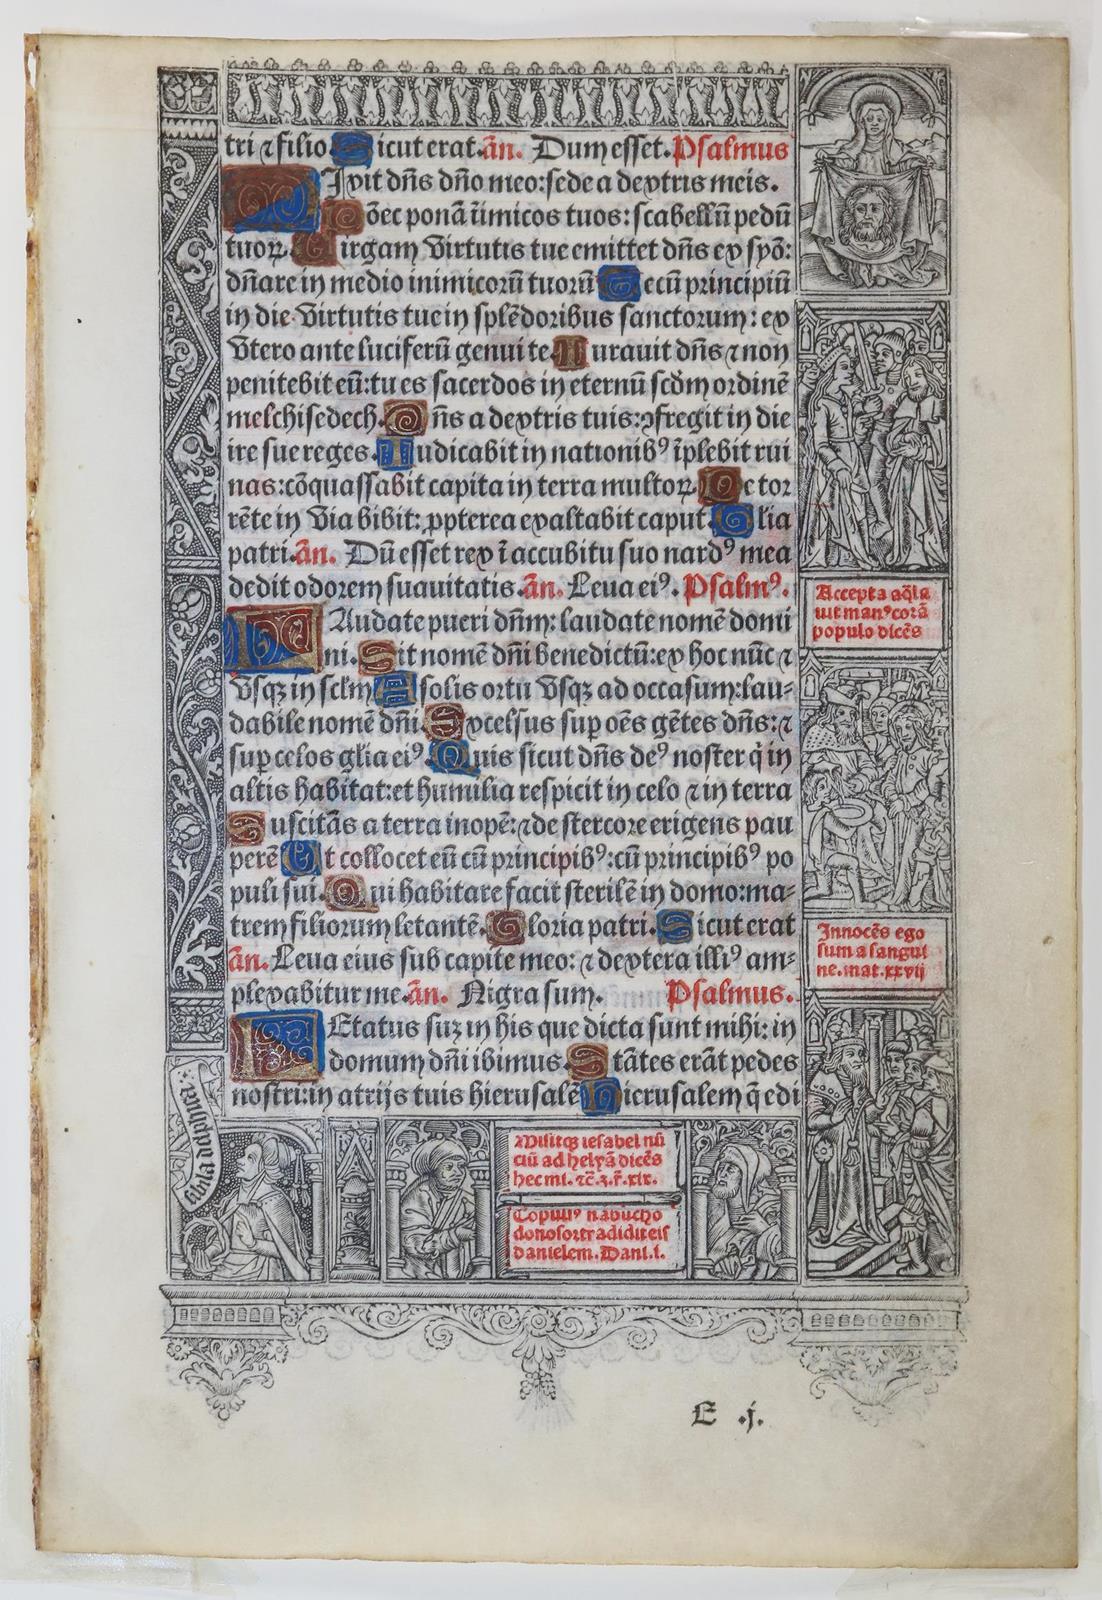 tri ⁊ filio Sicut erat. ãn. Dum esset. Psalmus
Ixit dñs dño meo: sede a dextris meis.
Dõec ponã iĩmicos tuos: scabellũ pedũ
tuoꝝ. Uirgam virtutis tue emittet dñs ex syõ:
dñare in medio inimicorũ tuorũ Tecũ principiũ
in die virtutis tue in splẽdoribus sanctorum: ex
vtero ante luciferũ genui te. Iurauit dñs ⁊ non
penitebit eũ: tu es sacerdos in eternũ scd̃m ordinẽ
melchisedech. Dñs a dextris tuis: ꝯfregit in die
ire sue reges. Iudicabit in nationibꝰ ĩplebit rui
nas: cõquassabit capita in terra multoꝝ. De tor
rẽte in via bibit: ꝓpterea exaltabit caput. Glia
patri. ãn. Dũ esset rex ĩ accubitu suo nardꝰ mea
dedit odorem suauitatis. ãn. Leua eiꝰ. Psalmꝰ.
LAudate pueri dñm: laudate nomẽ domi
ni. Sit nomẽ dñi benedictũ: ex hoc nũc ⁊
vsqꝫ in sclm̃ A solis ortu vsqꝫ ad occasum: lau-
dabile nomẽ dñi. Excelsus sup oẽs gẽtes dñs: ⁊
sup celos glia eiꝰ. Quis sicut dñs deꝰ noster q̇ in
altis habitat: et humilia respicit in celo ⁊ in terra
Suscitãs a terra inopẽ: ⁊ de stercore erigens pau
perẽ Ut collocet eũ cũ principibꝰ: cũ principibꝰ po
puli sui. Qui habitare facit sterilẽ in domo: ma-
trem filiorum letantẽ. Gloria patri. Sicut erat
ãn. Leua eius sub capite meo: ⁊ dextera illiꝰ am-
plexabitur me. ãn. Nigra sum. Psalmus.
LEtatus suꝫ in his que dicta sunt mihi: in
domum dñi ibimus. Stãtes erãt pedes
nostri: in atrijs tuis hierusalẽ Hierusalem q̃ edi
Accepta aq̃ la
uit manꝰ corã
populo dicẽs
Innocẽs ego
sum a sangui
ne. mat. xxvij
Misitqꝫ iesabel nũ
ciũ ad helyã dicẽs
hec mi. ⁊c̃. 3. r̃. xix.
Populꝰ nabucho
donosor tradidit eis
danielem. Dani. i.
E .j.